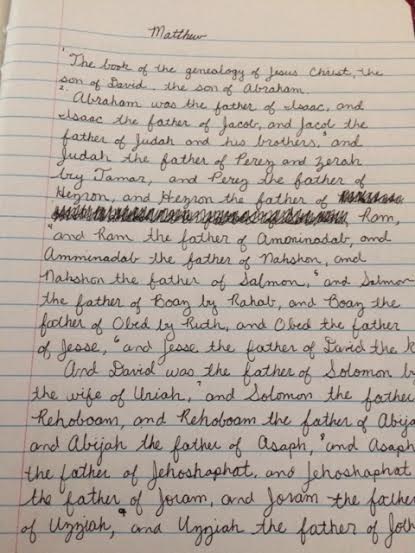 Matthew
¹ The book of the genealogy of Jesus Christ, the
son of David, the son of Abraham.
². Abraham was the father of Isaac, and
Isaac the father of Jacob, and Jacob the
father of Judah and his brothers, ³ and
Judah the father of Perez and Zerah
by Tamar, and Perez the father of
Hezron, and Hezron the father of
Ram,
⁴ and Ram the father of Amminadab, and
Amminadab the father of Nahshon, and
Nahshon the father of Salmon, ⁵ and Salmon
the father of Boaz by Rahab, and Boaz the
father of Obed by Ruth, and Obed the father
of Jesse, ⁶ and Jesse the father of David the k
And David was the father of Solomon b
the wife of Uriah, ⁷ and Solomon the father
Rehoboam, and Rehoboam the father of Abija
and Abijah the father of Asaph, ⁸ and Asaph
the father of Jehoshaphat, and Jehoshaphat
the father of Joram, and Joram the father
of Uzziah, ⁹ and Uzziah the father of Joth